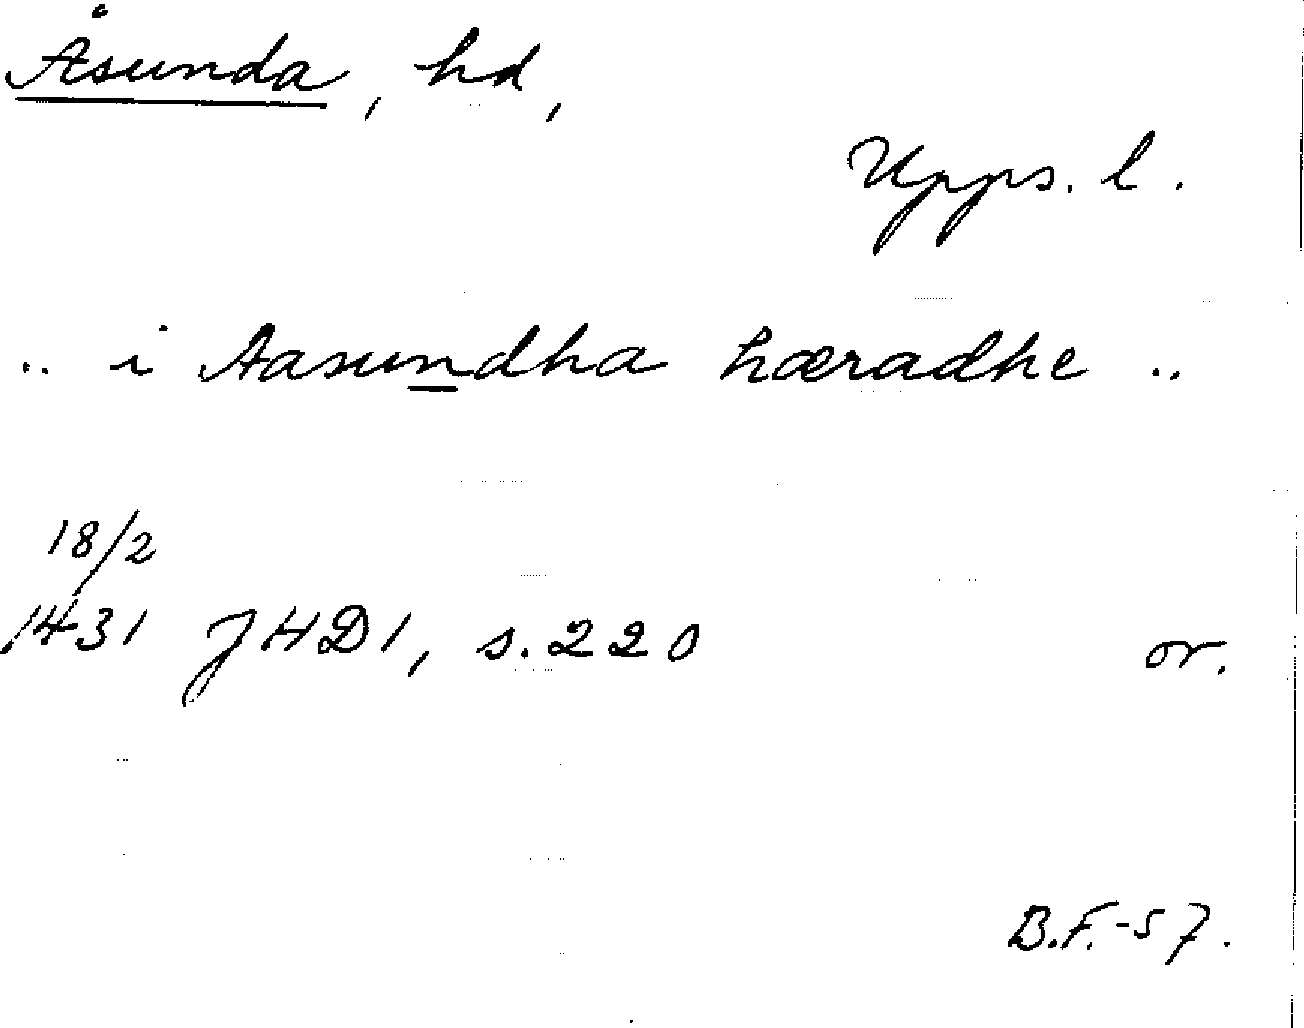 Åsunda, hd,
Upps. l.
.. i Aasundha hæradhe ..
18/2
1431 JHD1, s. 220 or.
B.F.-57.